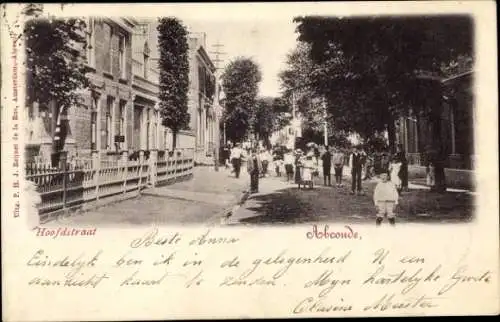 Uitg. P. H. J. Roquet de la Rue, Amsterdam-Abcoude
Hoofdstraat
Abcoude,
Beste Anna
Eindelijk ben ik in de gelegenheid U een
aanzicht kaart te zenden. Mijn hartelijke Groete
Meister